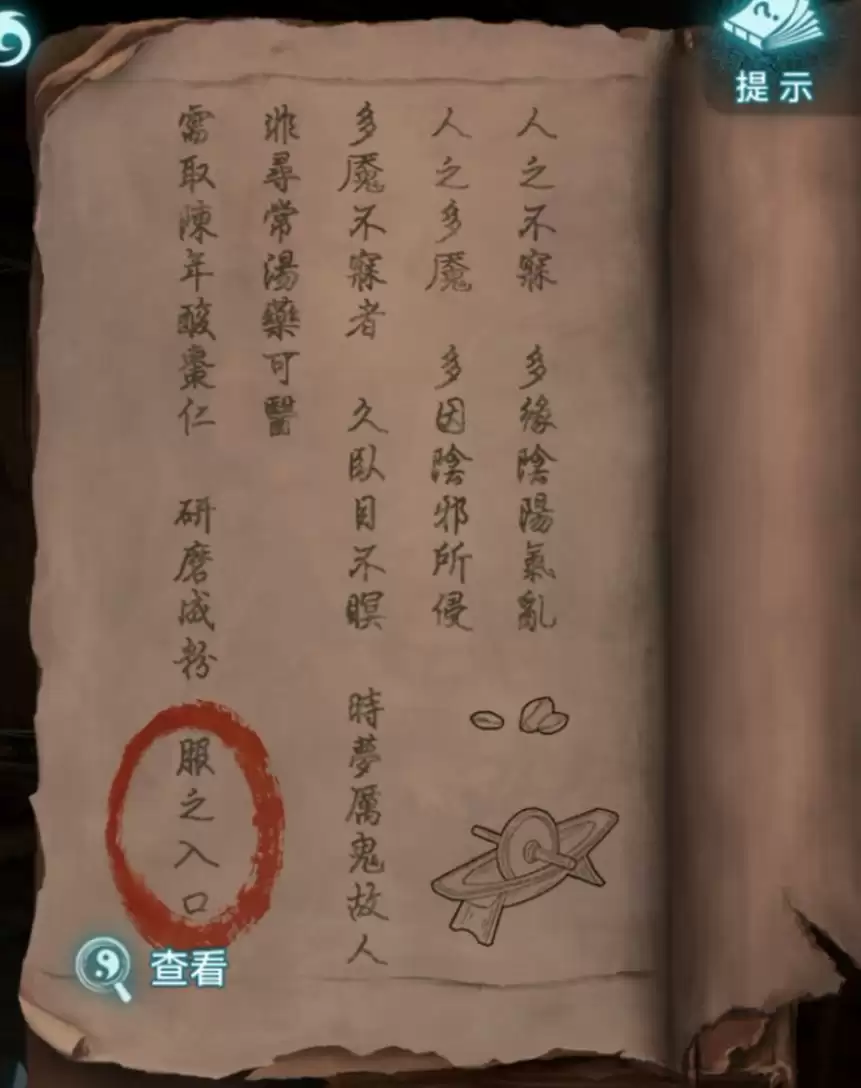 提示
人之不寐 多緣陰陽氣亂
人之多魘 多因陰邪所侵
多魘不寐者 久臥目不瞑 時夢厲鬼故人
非尋常湯藥可醫
需取陳年酸棗仁 研磨成粉 服之入口
查看